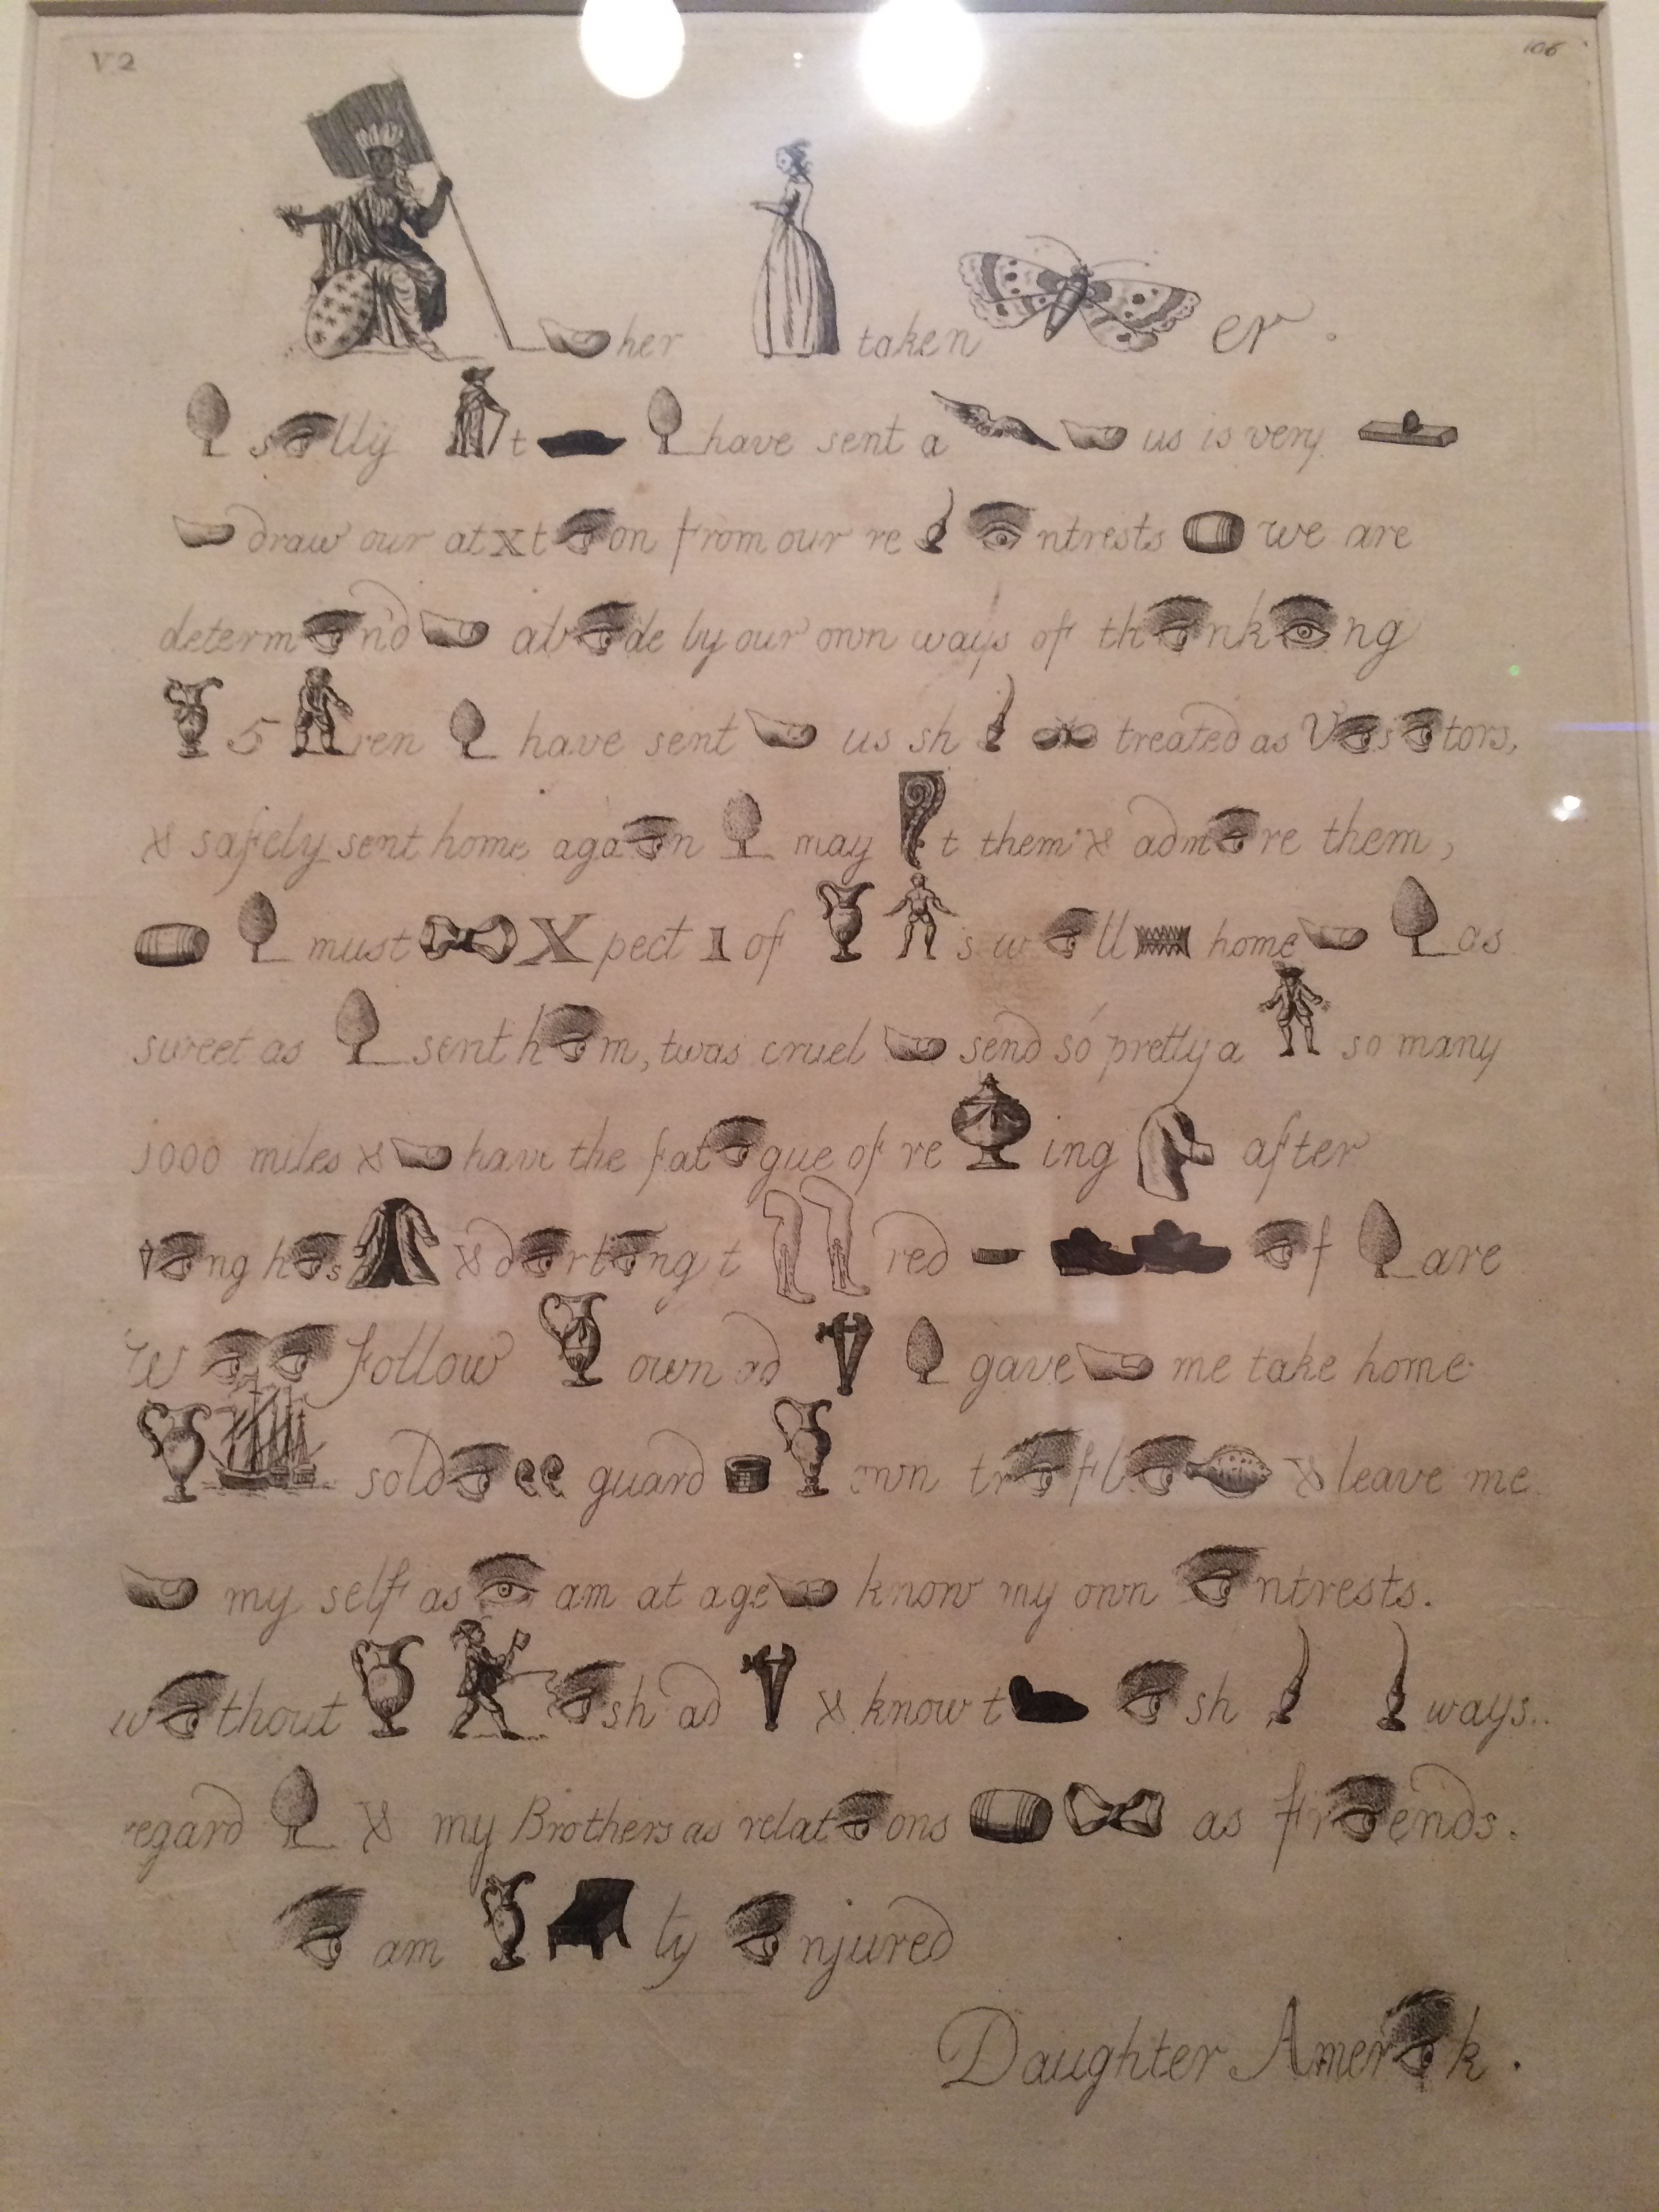 V2 106
her taken er.
s lly t have sent a us is very
draw our at x t on from our re ntrests we are
determ n'd ab de by our own ways of th nk ng
5 ren have sent us sh treated as V s tors,
& safely sent home aga n may t them & adm re them,
must X pect 1 of 's w ll home as
sweet as sent h m, twas cruel send so pretty a so many
1000 miles & have the fat gue of re ing after
ng h s & d rt ng t red f are
w follow own ad gave me take home
sold guard own tr fl & leave me
my self as am at age know my own ntrests.
w thout sh ad & know t sh ways..
regard & my Brothers as relat ons as fr ends.
am ly njured
Daughter Amer k.